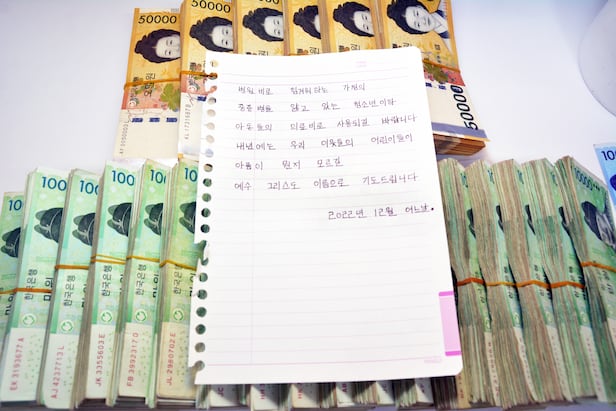 50000
50000
50000
50000
50000
병원비로 힘겨워 하는 가정의
중증 병을 앓고 있는 청소년이나
아동들의 의료비로 사용되길 바랍니다
내년에는 우리 이웃들의 어린이들이
아픔이 뭔지 모르길
예수 그리스도 이름으로 기도드립니다
2022년 12월 어느날.
100
100
100
100
10000
한국은행
한국은행
한국은행
한국은행
EK 3193677 A
AJ 4237713 L
JK 3355603 E
FB 3992317 D
JL 2980702 E